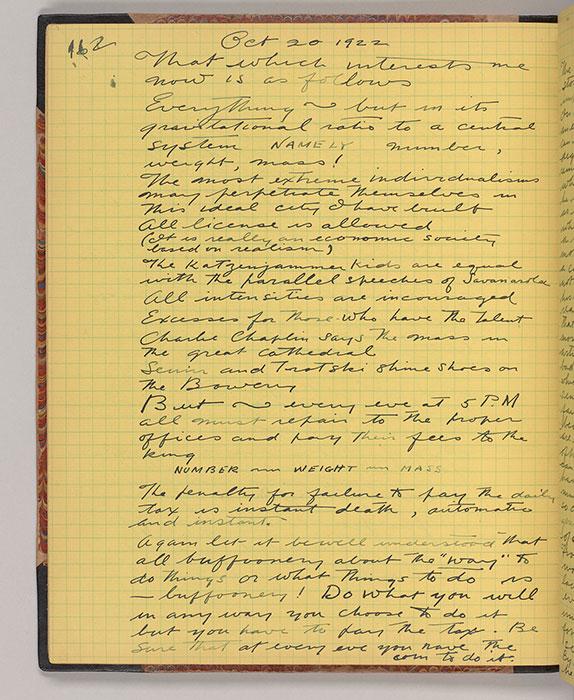 162
Oct 20 1922
That which interests me
now is as follows
Everything ~ but in its
gravitational ratio to a central
system NAMELY number,
weight, mass!
The most extreme individualisms
may perpetrate themselves in
this ideal city I have built
All license is allowed
(It is really an economic society
based on realism)
The Katzenjammer Kids are equal
with the parallel speeches of Savanarola
All intensities are incouraged
Excesses for those who have the talent
Charlie Chaplin says the mass in
the great cathedral
and Trotski shine shoes on
the Bowery
But ~ every eve at 5 P.M
all must repair to the proper
offices and pay their fees to the
King
NUMBER — WEIGHT — MASS
The penalty for failure to pay the daily
tax is instant death, automatic
and instant.
Again let it be well understood that
all buffoonery about the "way" to
do things or what things to do is
— buffoonery! Do what you will
in any way you choose to do it
but you have to pay the tax. Be
sure that at every eve you have the
coin to do it.